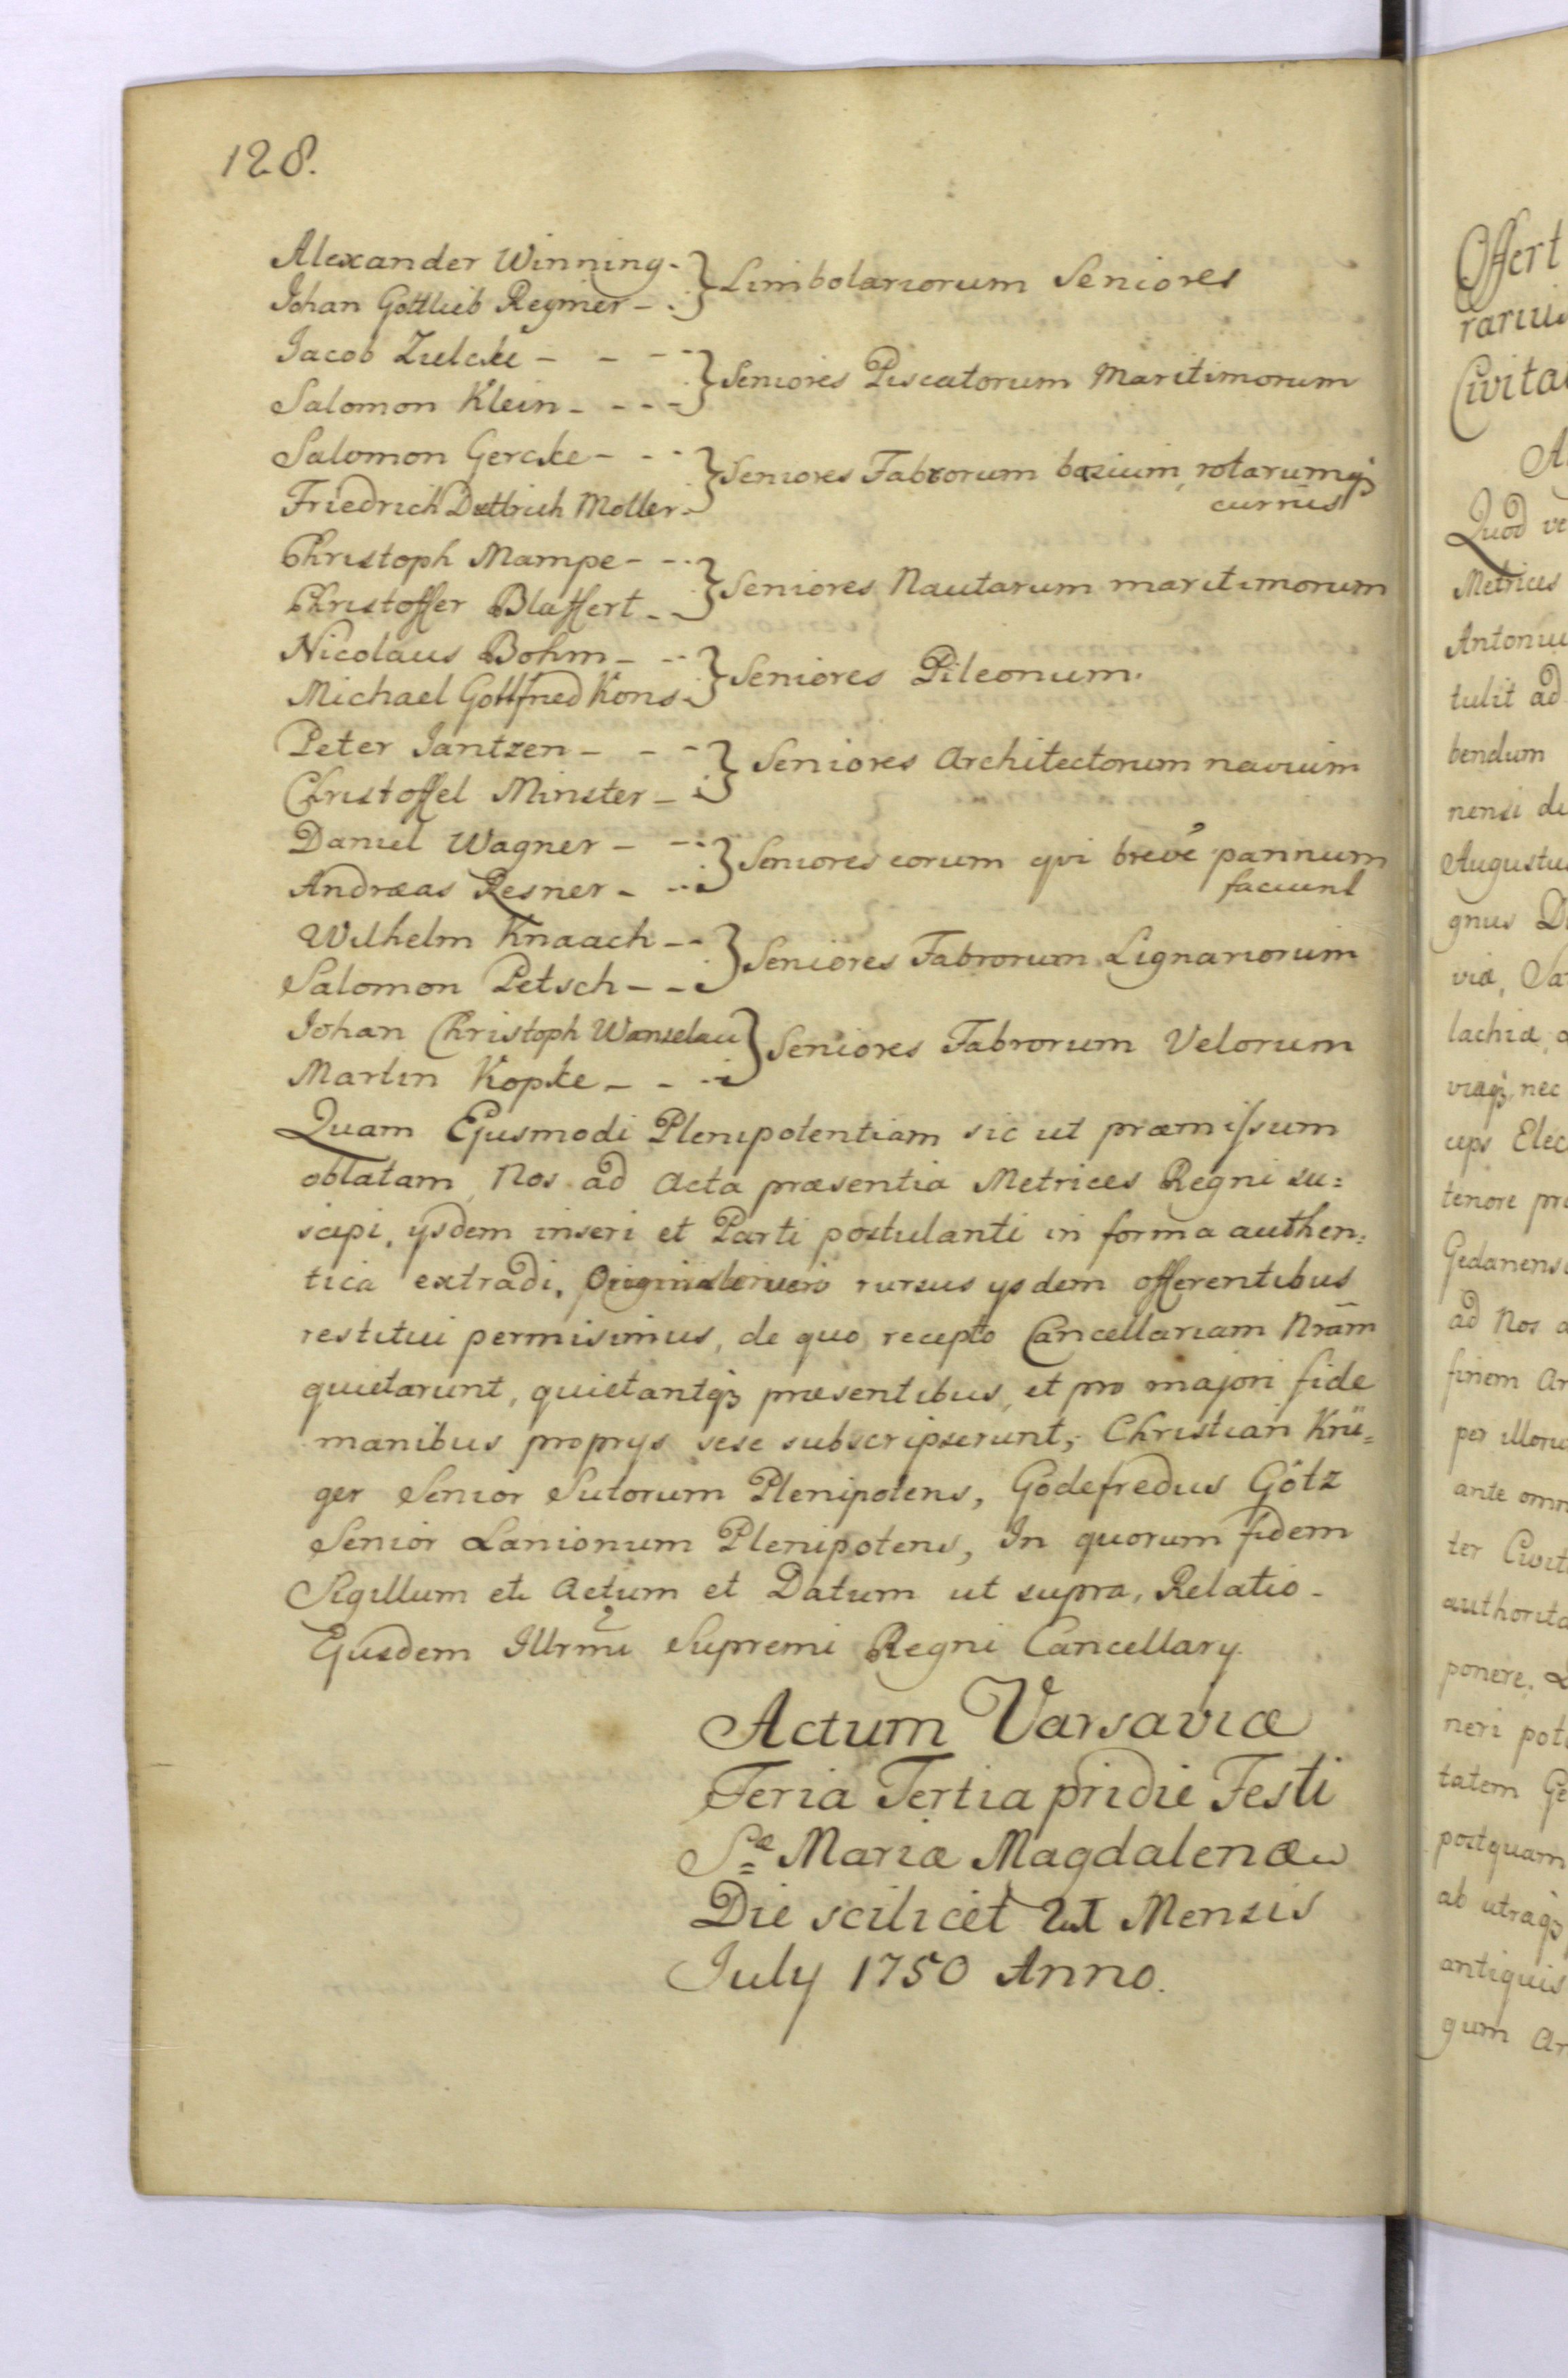 128.
Alexander Winning - } Limbolariorum Seniores
Johan Gottlieb Regmer - .
Jacob Zulcke - - - } Seniores Piscatorum Maritimorum
Salomon Klein - - - -
Salomon Gercke - - - } Seniores Fabrorum basium, rotarumqꝫ
currus
Friedrich Dettrich Moller -
Christoph Mampe - - - } Seniores Nautarum maritimorum
Christoffer Blaffert - -
Nicolaus Bohm - - - } Seniores Pileonum.
Michael Gottfried Kons -
Peter Jantzen - - - } Seniores Architectorum navium
Christoffel Minster -
Daniel Wagner - - } Seniores eorum qvi brevé pannum
faciunt
Andræas Resner - - -
Wilhelm Knaach - - } Seniores Fabrorum Lignariorum
Salomon Petsch - - -
Johan Christoph Wanselau } Seniores Fabrorum Velorum
Martin Kopke - - -
Quam Ejusmodi Plenipotentiam sic ut præmissum
oblatam, Nos ad Acta præsentia Metrices Regni su=
scipi, ysdem inseri et Parti postulanti in forma authen=
tica extradi, Originale vero rursus ysdem offerentibus
restitui permisimus, de quo recepto Cancellariam Nrãm
quietarunt, quietantqꝫ præsentibus, et pro majori fide
manibus proprys sese subscripserunt; Christian Krü=
ger Senior Sutorum Plenipotens, Godefredus Götz
Senior Lanionum Plenipotens, In quorum fidem
Sigillum etc Actum et Datum ut supra, Relatio -
Ejusdem Illrmi Supremi Regni Cancellary.
Actum Varsaviæ
Feria Tertia pridie Festi
Sæ Mariæ Magdalenæ
Die scilicet 21 Mensis
July 1750 Anno.
Offert
Civita
Quod ve
Metrices
Antoniu
tulit ad
bendum
nensi de
Augustu
gnus D
viæ, Sa
lachiæ
viæqꝫ, nec
ceps Elec
tenore pr
Gedanens
ad Nos a
finem ar
per illoru
ante omn
ter Civit
authorita
ponere.
neri pot
tatem Ge
postquam
ab utraqꝫ
antiquis
gum Ar